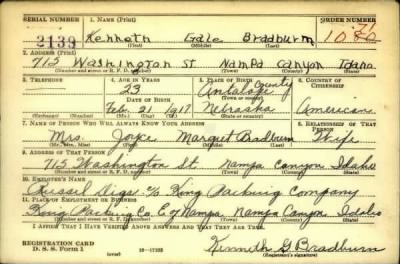 SERIAL NUMBER 1. NAME (Print) ORDER NUMBER
2139 Kenneth Gale Bradburn 10
(First) (Middle) (Last)
2. ADDRESS (Print)
715 Washington St Nampa Canyon Idaho
(Number and street or R. F. D. number) (Town) (County) (State)
3. TELEPHONE 4. AGE IN YEARS 5. PLACE OF BIRTH 6. COUNTRY OF CITIZENSHIP
23 Antalope County
DATE OF BIRTH (Town or county)
Feb. 21 1917 Nebraska American
(Exchange) (Number) (Mo.) (Day) (Yr.) (State or country)
7. NAME OF PERSON WHO WILL ALWAYS KNOW YOUR ADDRESS 8. RELATIONSHIP OF THAT PERSON
Mrs. Joyce Margret Bradburn Wife
(Mr., Mrs., Miss) (First) (Middle) (Last)
9. ADDRESS OF THAT PERSON
715 Washington St. Nampa Canyon Idaho
(Number and street or R. F. D. number) (Town) (County) (State)
10. EMPLOYER'S NAME
Russel % King Packing Company
11. PLACE OF EMPLOYMENT OR BUSINESS
King Packing Co. E of Nampa, Nampa Canyon Idaho
(Number and street or R. F. D. number) (Town) (County) (State)
I AFFIRM THAT I HAVE VERIFIED ABOVE ANSWERS AND THAT THEY ARE TRUE.
REGISTRATION CARD
D. S. S. Form 1 (over) 16-17105 Kenneth G Bradburn
(Registrant's signature)